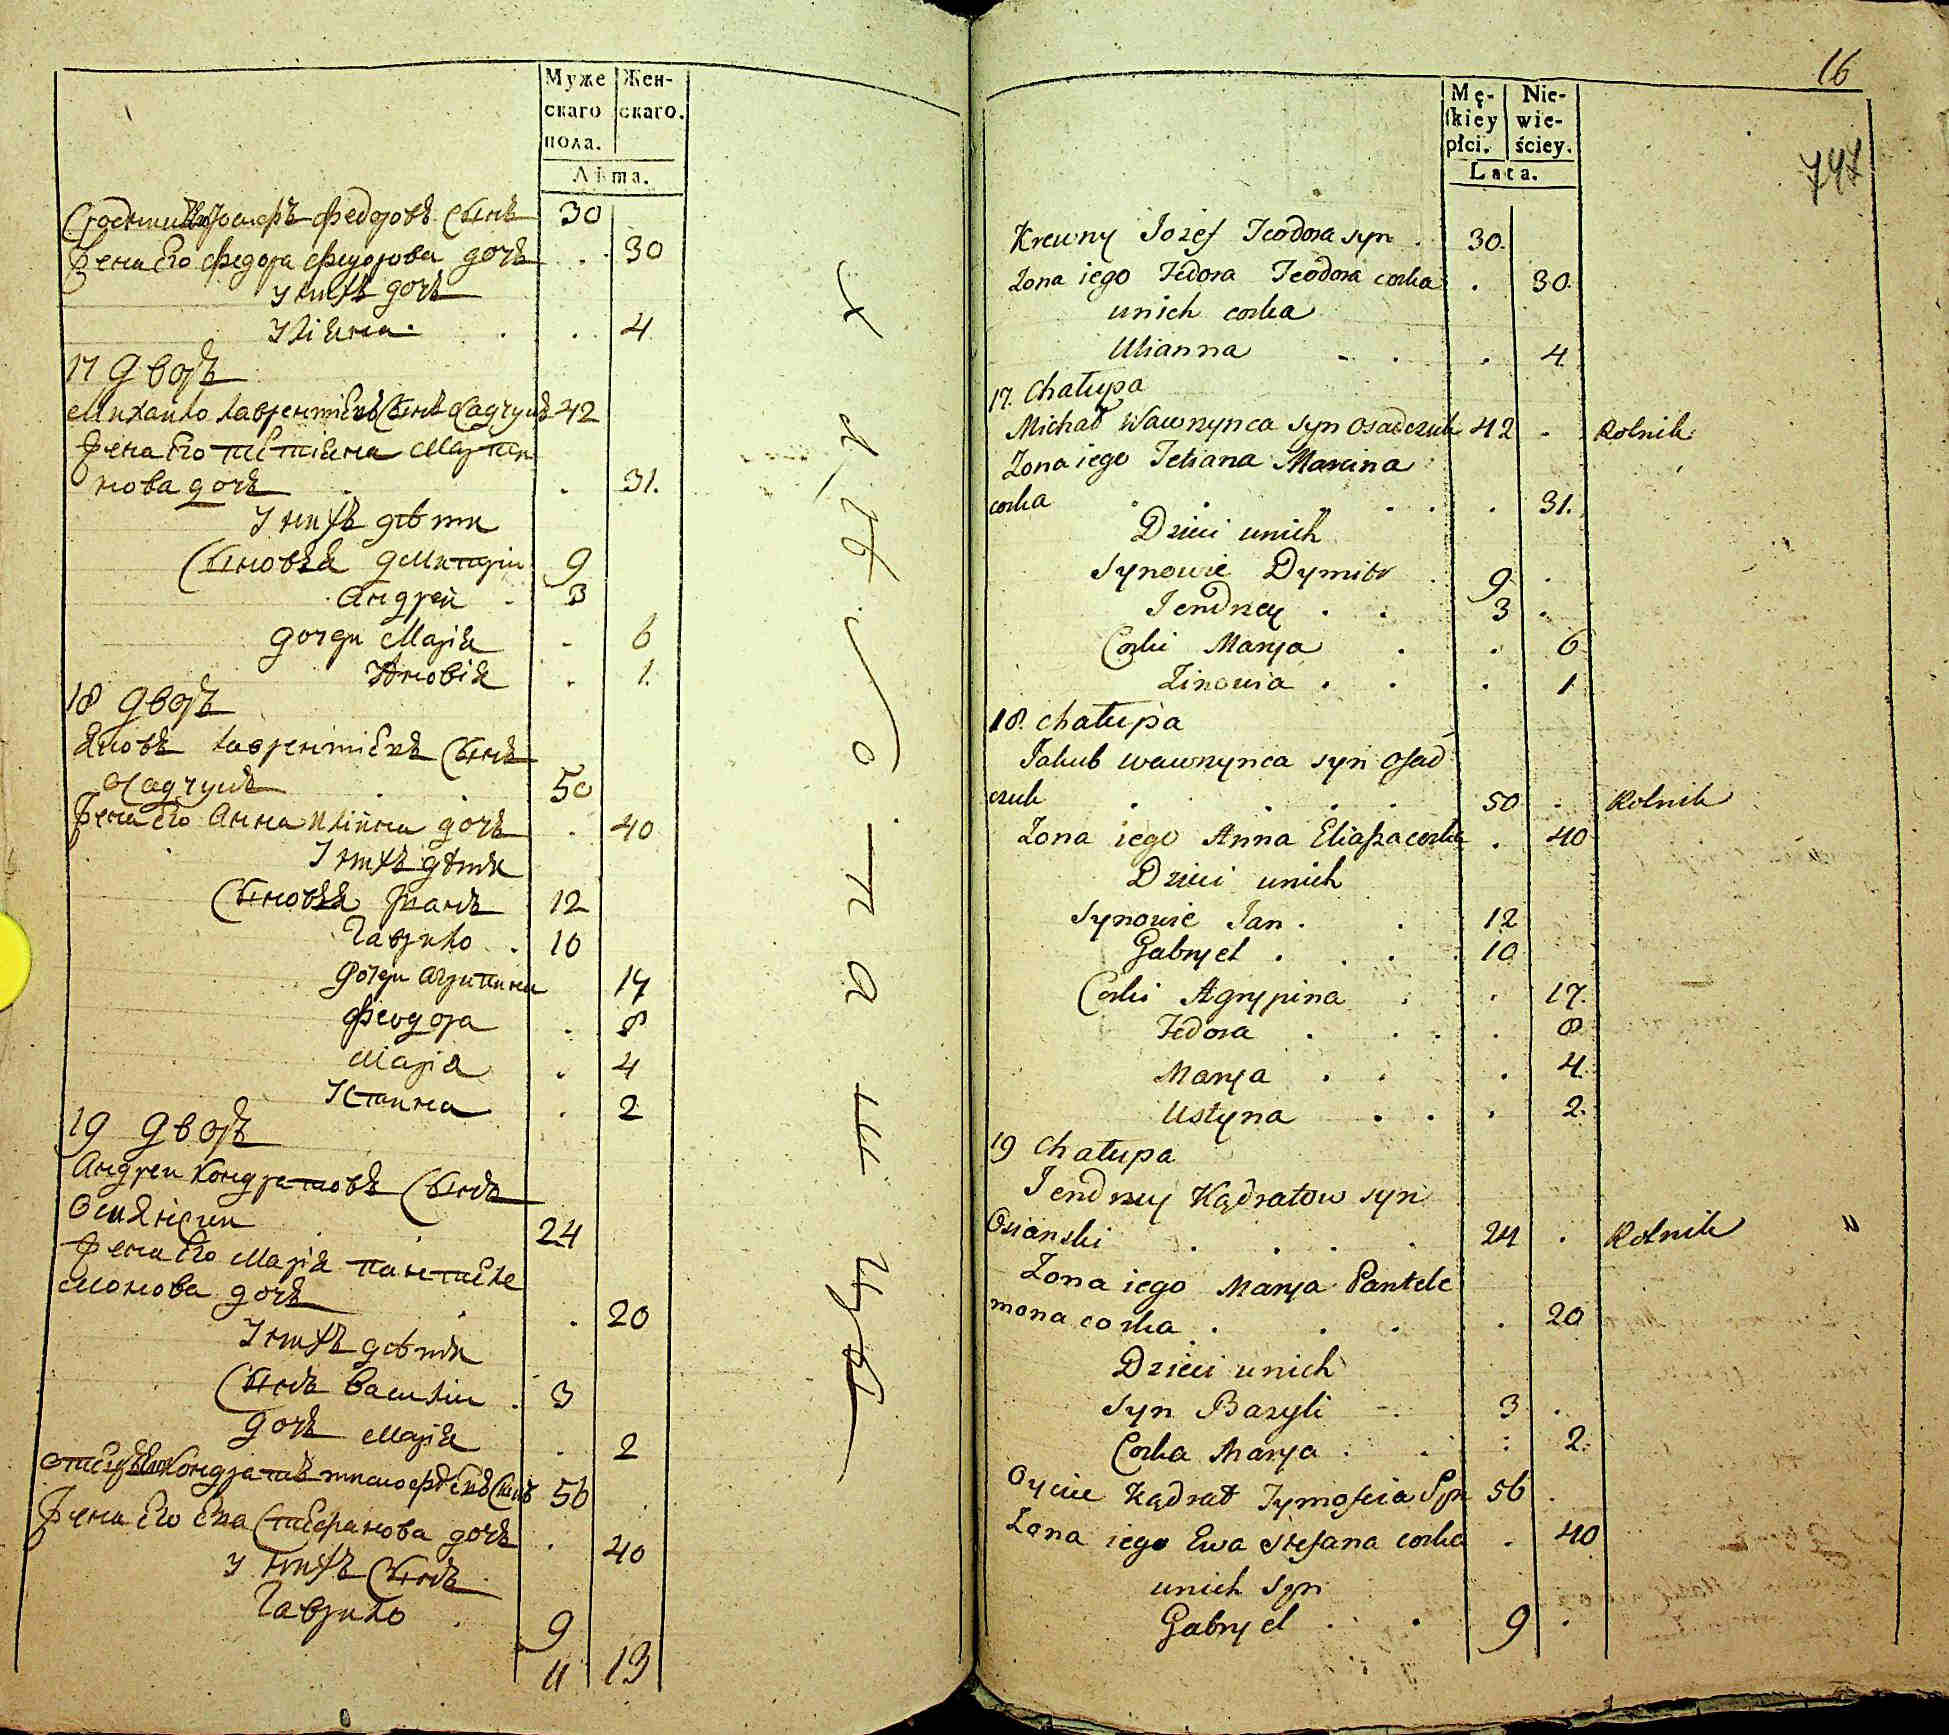 Муже Жен-
скаго скаго.
пола.
Лѣта.
Сродникъ Іосифъ Федоровъ Сынъ 30
Жена Его Федора Федорова дочь 30
У нихъ дочь
Уліяна 4
17 Дворъ
Михайло Лаврентіевъ Сынъ Осадчукъ 42
Жена Его Тетіяна Марти
нова дочь 31.
У нихъ дѣти
Сыновья Дмитрій 9
Андрей 3
Дочери Марія 6
Зѣновія 1.
18 Дворъ
Яковъ Лаврентіевъ Сынъ
Осадчукъ 50
Жена Его Анна Илійна дочь 40
У нихъ дѣти
Сыновья Иванъ 12
Гаврило 10
Дочери Агрипина 17
Феодора 8
Марія 4
Устина 2
19 Дворъ
Андрей Кондратовъ Сынъ
Осиянскій 24
Жена Его Марія Пантеле
монова дочь 20
У нихъ дѣти
Сынъ Василій 3
дочь Марія 2
Отецъ Его Кондратъ Тимофѣевъ Сынъ 56
Жена Его Ева Стефанова дочь 40
У нихъ Сынъ
Гаврило 9
11 13
16
747
Mę- Nie-
skiey wie-
płci. ściey.
Lata.
Krewny Jozef Teodora syn 30.
Zona iego Fedora Teodora corka 30.
unich corka
Ulianna 4
17. Chałupa
Michał Wawrzynca syn Osadczuk 42 Rolnik
Zona iego Tetiana Marcina
corka 31.
Dzieci unich
Synowie Dymitr 9
Jendrzey 3
Corki Marya 6
Zinowia 1
18. Chałupa
Jakub Wawrzynca syn Osad
czuk 50 Rolnik
Zona iego Anna Eliasza corka 40
Dzieci unich
Synowie Jan 12
Gabryel 10
Corki Agrypina 17.
Fedora 8
Marya 4
Ustyna 2.
19 Chałupa
Jendrzey Kądratow syn
Osianski 24 Rolnik
Zona iego Marya Pantele
mona corka 20
Dzieci unich
Syn Bazyli 3
Corka Marya 2.
Oyciec Kądrat Tymofeia Syn 56
Zona iego Ewa Stefana corka 40
unich Syn
Gabryel 9